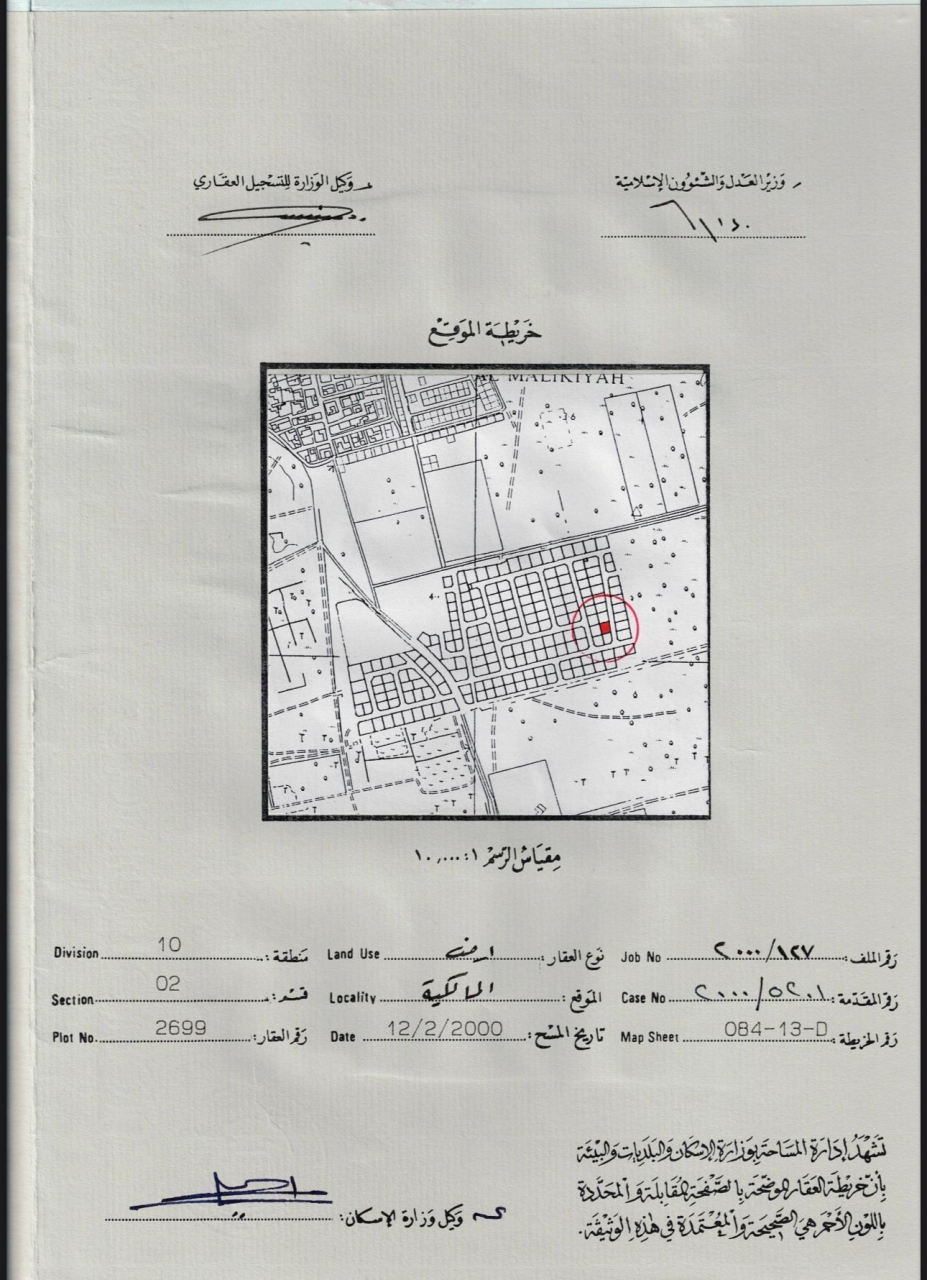 وزير العدل والشئوون الإسلامية
وكيل الوزارة للتسجيل العقاري
خريطة الموقع
AL MALIKIYAH
مقياس الرسم ١:١٠,٠٠٠
رقم الملف: ٢٠٠٠/١٢٧ Job No نوع العقار: ارض Land Use منطقة: 10 Division
رقم المقدمة: ٢٠٠٠/٥٢٠١ Case No الموقع: المالكية Locality قسم: 02 Section
رقم الخريطة: 084-13-D Map Sheet تاريخ المسح: 12/2/2000 Date رقم العقار: 2699 Plot No.
تشهد إدارة المساحة بوزارة الإسكان والبلديات والبيئة
بأن خريطة العقار الموضحة بالصفحة المقابلة والمحددة
باللون الأحمر هي الصحيحة والمعتمدة في هذه الوثيقة.
وكيل وزارة الاسكان: